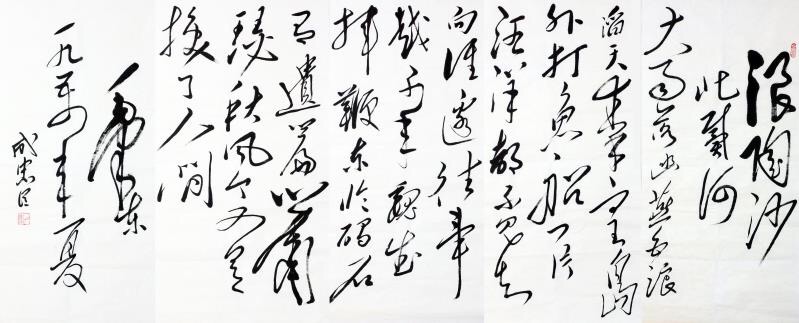 浪淘沙
北戴河
大雨落幽燕白浪
滔天秦皇岛
外打鱼船一片
汪洋都不见知
向谁边往事
越千年魏武
挥鞭东临碣石
有遗篇萧
瑟秋风今又是
换了人间
毛泽东
一九五四年夏
成忠臣